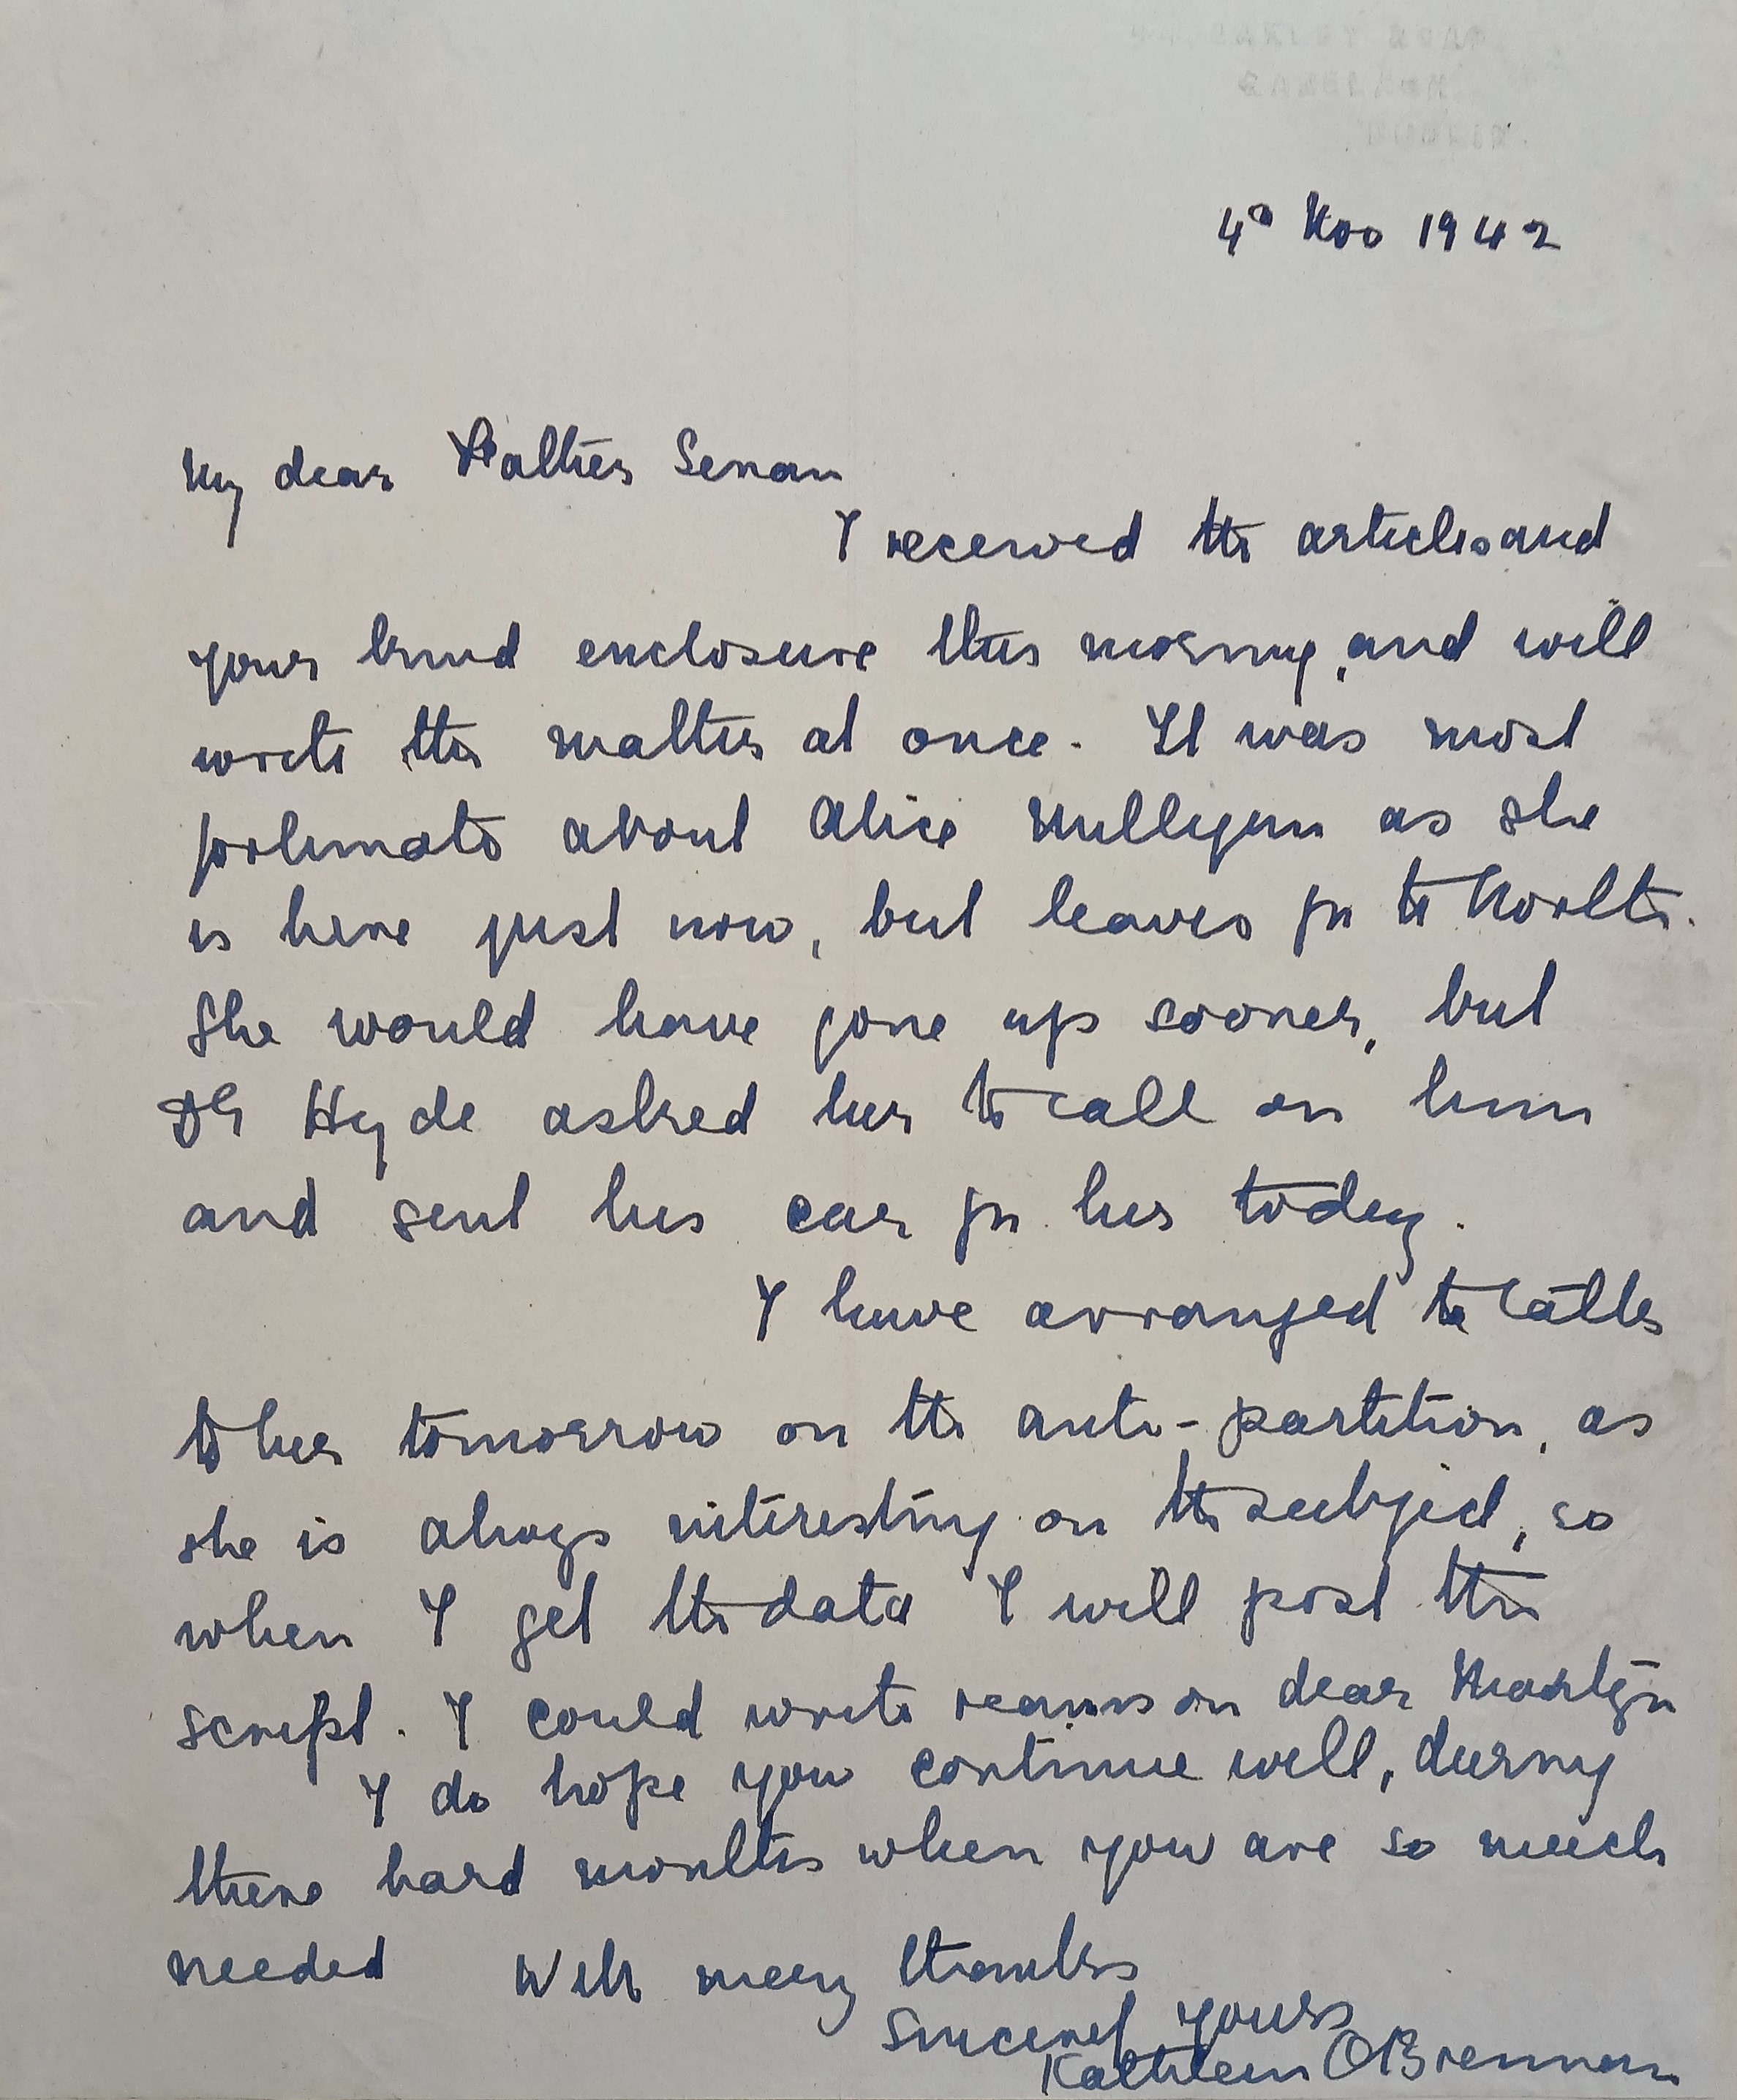 4th Nov 1942
My dear Father Senan
I received the articles and
your kind enclosure this morning, and will
write the matter at once. It was most
fortunate about Alice Milligan as she
is here just now, but leaves for the North.
She would have gone up sooner, but
Dr Hyde asked her to call on him
and sent his car for her today.
I have arranged to talk
to her tomorrow on the anti-partition, as
she is always interesting on the subject, so
when I get the data I will post the
script. I could write reams on dear Martyn
I do hope you continue well, during
these hard months when you are so much
needed With many thanks
Sincerely yours
Kathleen O'Brennan